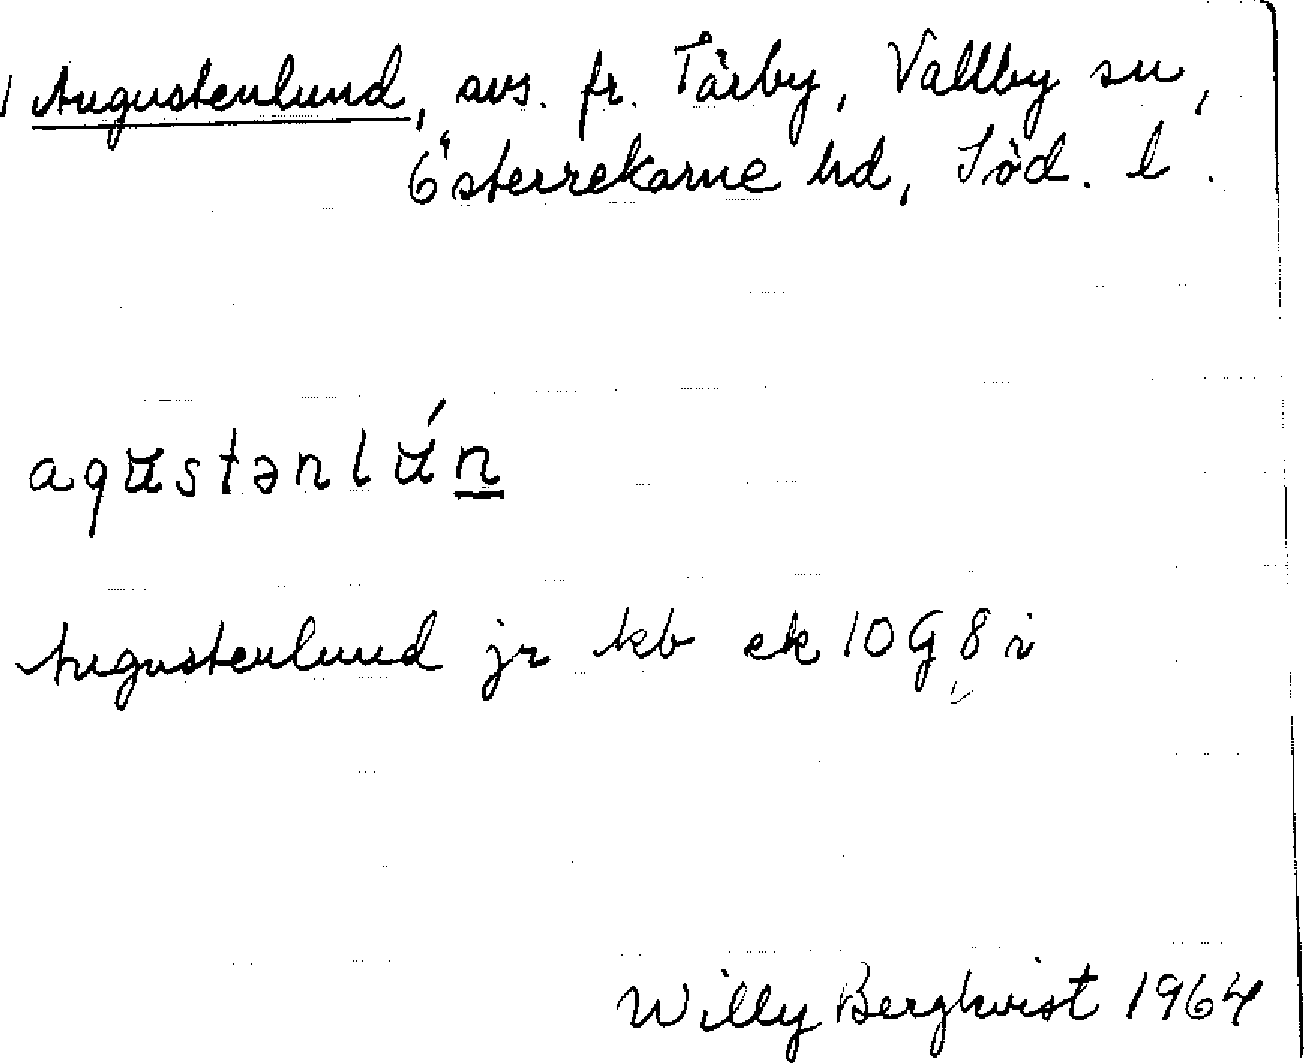 Augustenlund, avs. fr. Tärby, Vallby sn,
Österrekarne hd, Söd. l.
agustənlún
Augustenlund jr kb ek 10G 8 i
Willy Bergkvist 1964